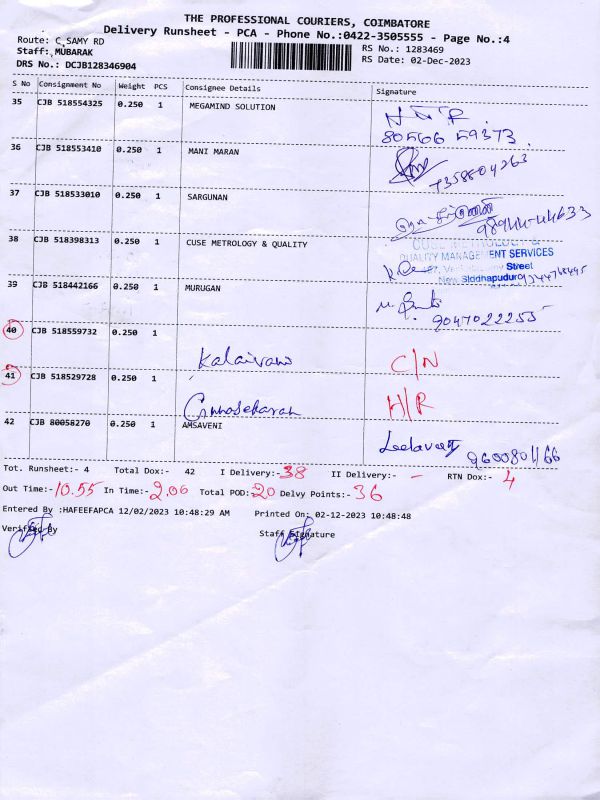 THE PROFESSIONAL COURIERS, COIMBATORE
Delivery Runsheet - PCA - Phone No.:0422-3505555 - Page No.:4
Route: C_SAMY RD
RS No.: 1283469
Staff: MUBARAK
RS Date: 02-Dec-2023
DRS No.: DCJB128346904
S No Consignment No Weight PCS Consignee Details Signature
35 CJB 518554325 0.250 1 MEGAMIND SOLUTION
80566 59373
36 CJB 518553410 0.250 1 MANI MARAN
7358804263
37 CJB 518533010 0.250 1 SARGUNAN
38 CJB 518398313 0.250 1 CUSE METROLOGY & QUALITY
QUALITY MANAGEMENT SERVICES
Street
Siddhapudur
39 CJB 518442166 0.250 1 MURUGAN
9047022255
40 CJB 518559732 0.250 1
Kalaivani C/N
41 CJB 518529728 0.250 1
H/R
42 CJB 80058270 0.250 1 AMSAVENI
9600801166
Tot. Runsheet:- 4 Total Dox:- 42 I Delivery:- 38 II Delivery:- - RTN Dox:- 4
Out Time:- 10.55 In Time:- 2.06 Total POD: 20 Delvy Points:- 36
Entered By :HAFEEFAPCA 12/02/2023 10:48:29 AM Printed On: 02-12-2023 10:48:48
Verified By Staff Signature